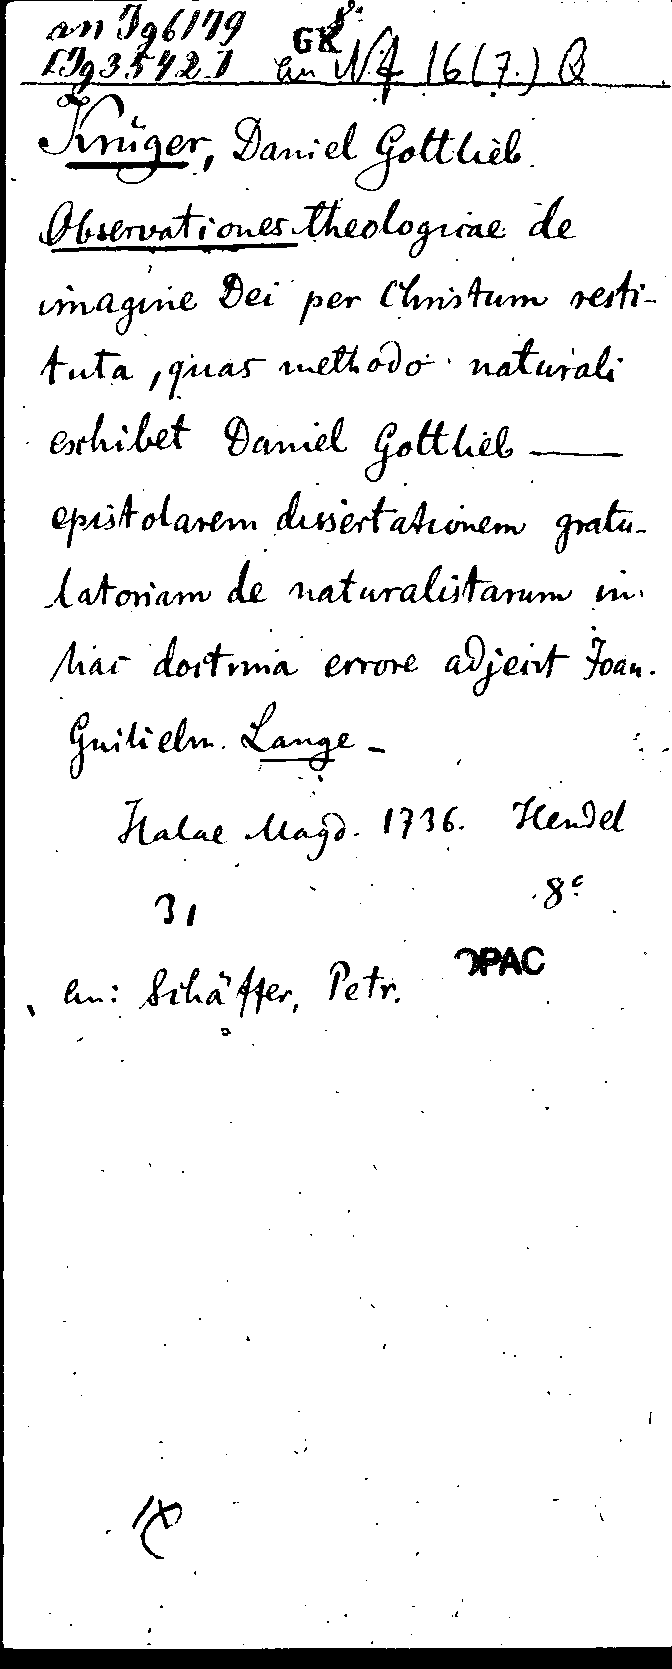 an Jg 6179 8°
[Jg 3542.1 GK an Nf 16 (7.) Q
Krüger, Daniel Gottlieb.
Observationes theologicae de
imagine Dei per Christum resti-
tuta, quas methodo naturali
exhibet Daniel Gottlieb ——
epistolarem dissertationem gratu-
latoriam de naturalistarum in
hac doctrina errore adjecit Joan.
Guilielm. Lange –
Halae Magd. 1736. Hendel
31 8°
OPAC
an: Schäffer, Petr.